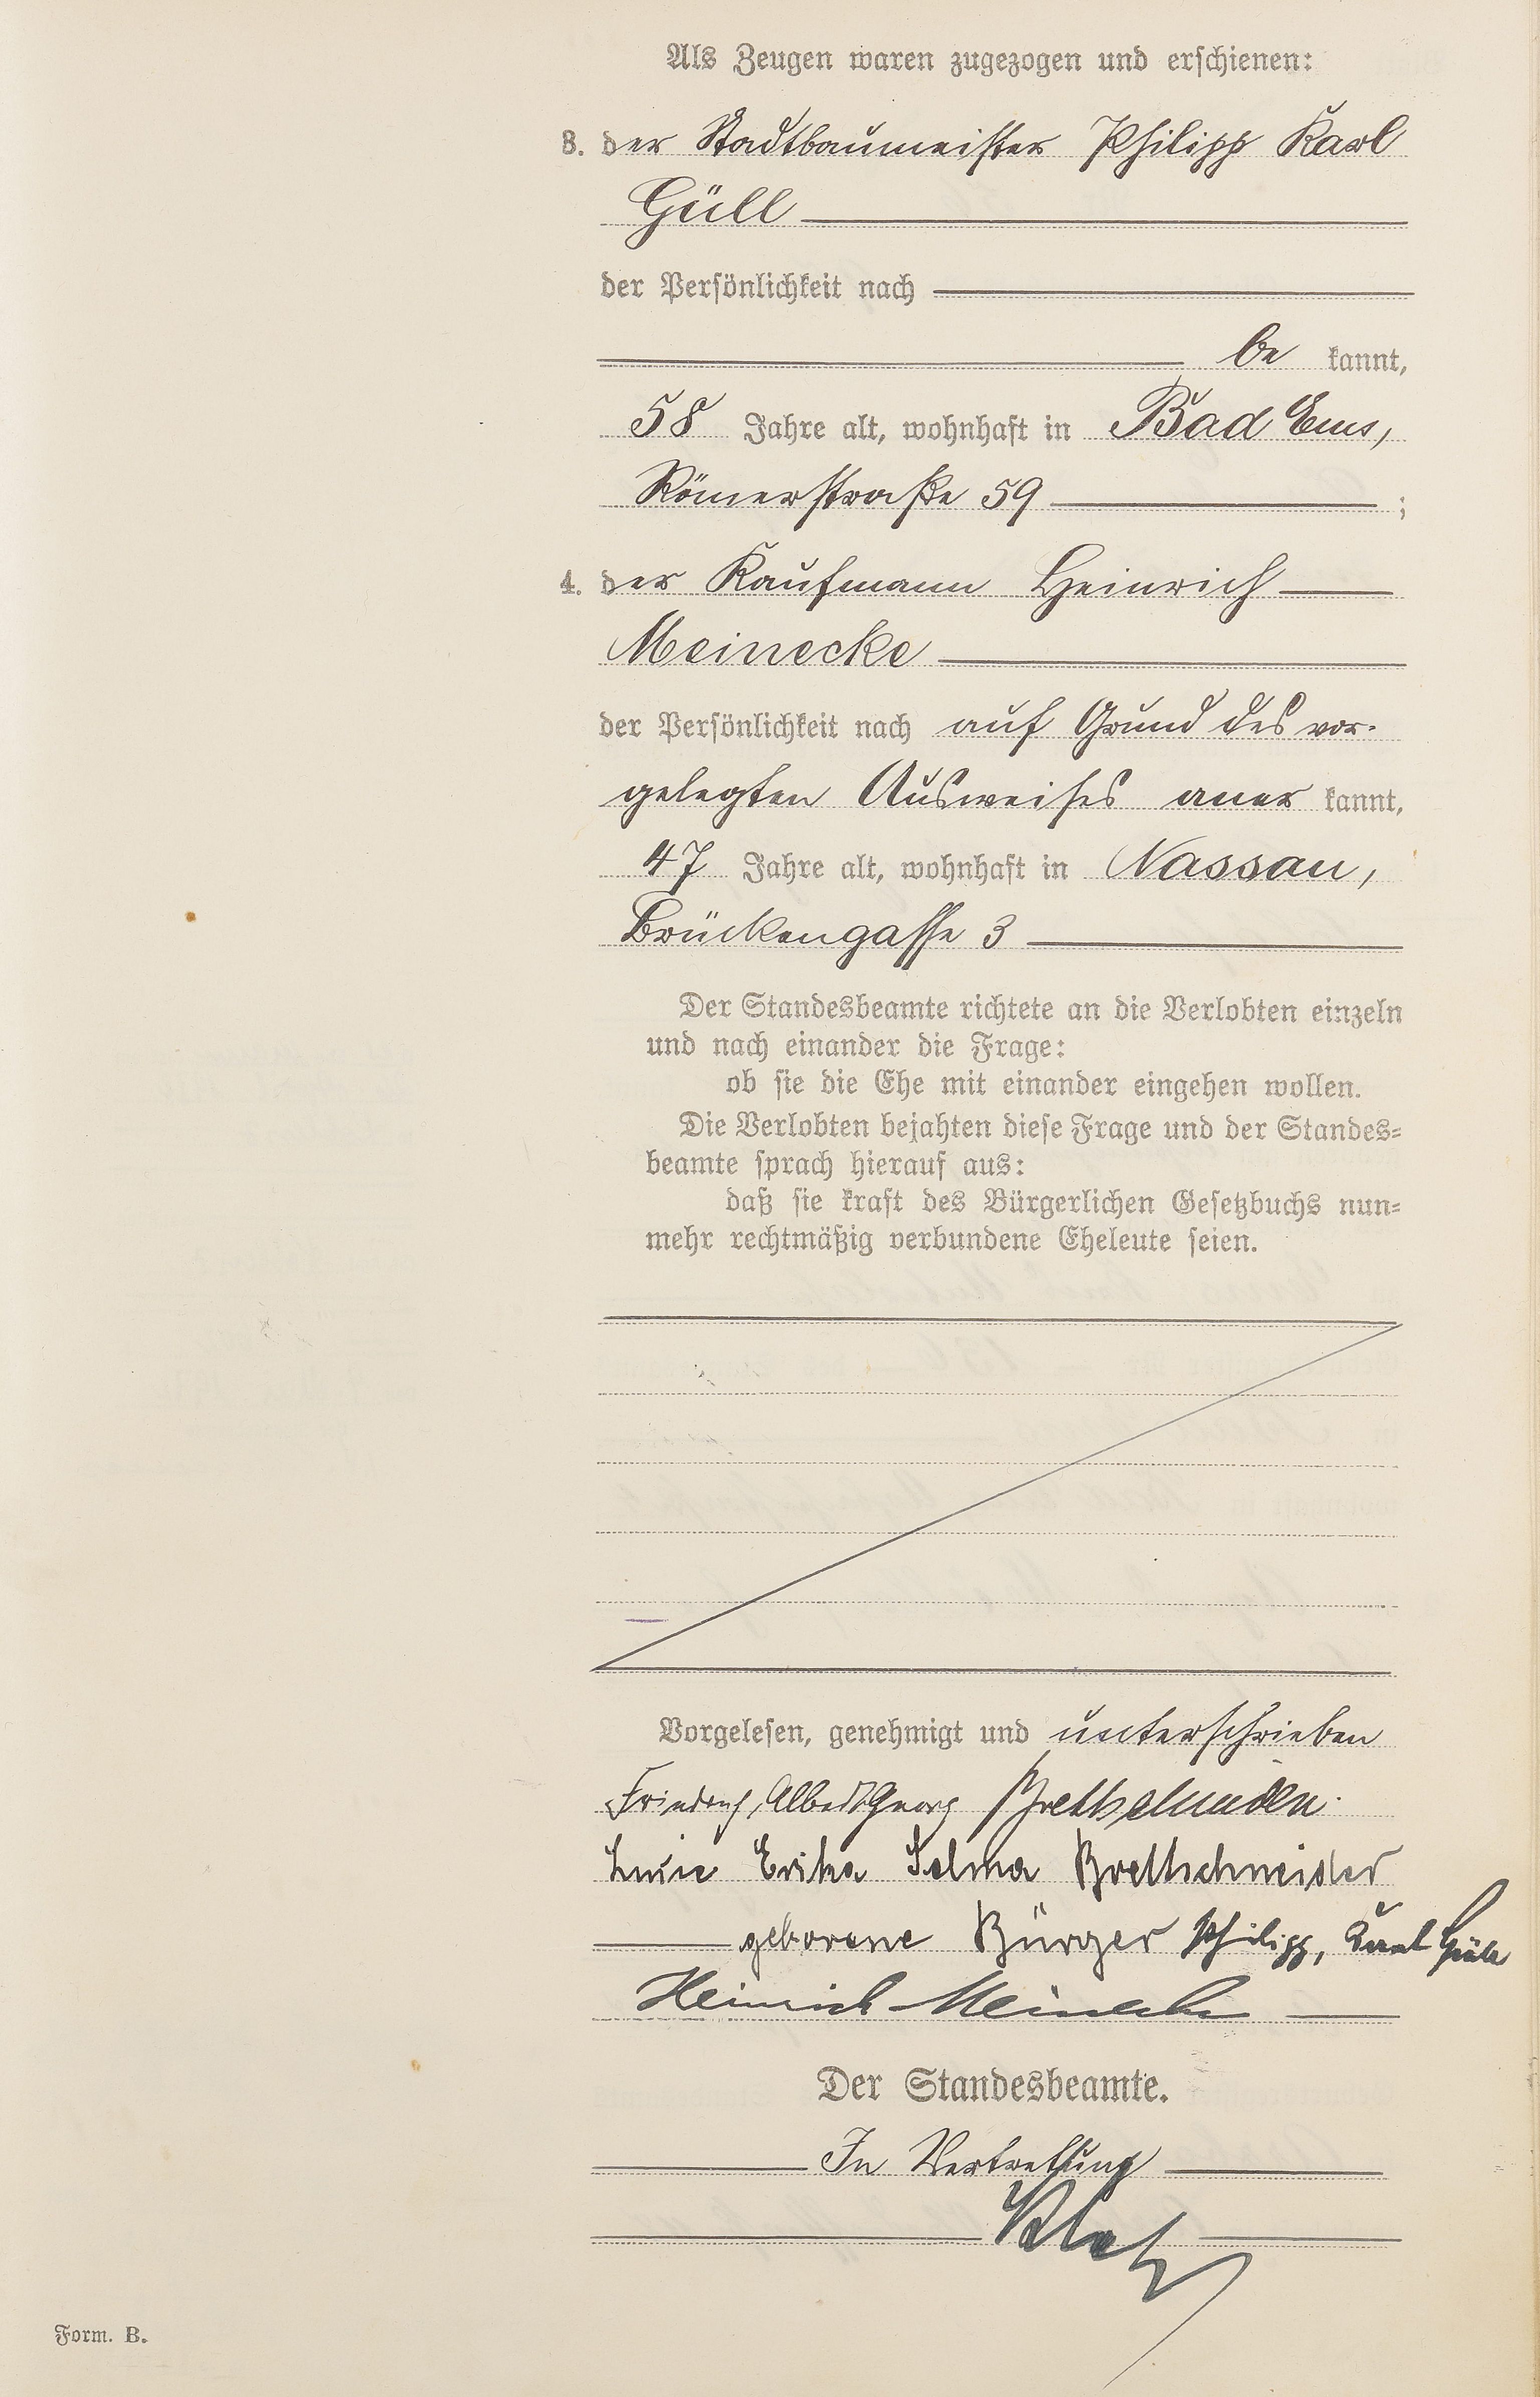 Als Zeugen waren zugezogen und erschienen:
3. der Stadtbaumeister Philipp Karl
Güll
der Persönlichkeit nach
be kannt,
58 Jahre alt, wohnhaft in Bad Ems,
Römerstraße 59 ;
4. der Kaufmann Heinrich
Meinecke
der Persönlichkeit nach auf Grund des vor-
gelegten Ausweises aner kannt,
47 Jahre alt, wohnhaft in Nassau,
Brückengasse 3
Der Standesbeamte richtete an die Verlobten einzeln
und nach einander die Frage:
ob sie die Ehe mit einander eingehen wollen.
Die Verlobten bejahten diese Frage und der Standes-
beamte sprach hierauf aus:
daß sie kraft des Bürgerlichen Gesetzbuchs nun-
mehr rechtmäßig verbundene Eheleute seien.
Vorgelesen, genehmigt und unterschrieben
Friedrich, Albert Georg Brettschneider
Luise Erika Selma Brettschneider
geborene Bürger Philipp, Karl Güll
Heinrich Meinecke
Der Standesbeamte.
In Vertretung
Form. B.